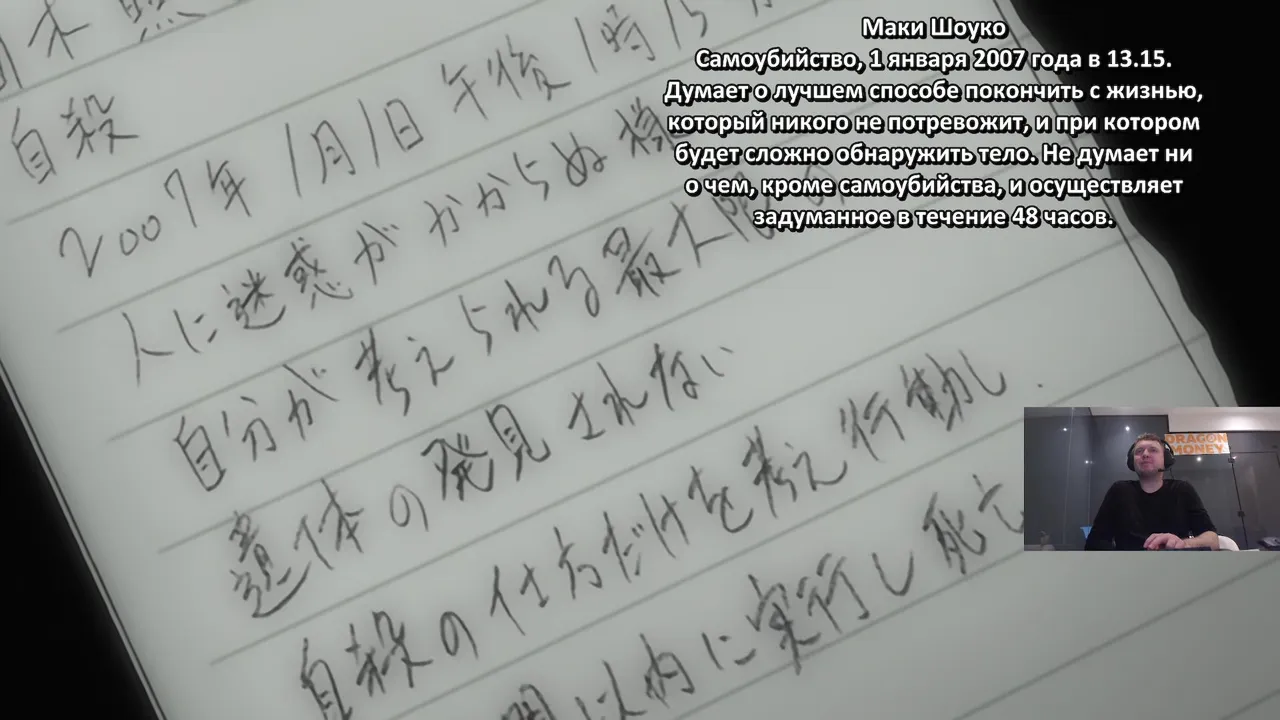 Маки Шоуко
Самоубийство, 1 января 2007 года в 13.15.
Думает о лучшем способе покончить с жизнью,
который никого не потревожит, и при котором
будет сложно обнаружить тело. Не думает ни
о чем, кроме самоубийства, и осуществляет
задуманное в течение 48 часов.
自殺
2007年 1月1日 午後 1時15
人に迷惑がかからぬ様
自分が考えられる最大限の
遺体の発見されない
自殺の仕方だけを考え行動し
間以内に実行し死亡
DRAGON
MONEY